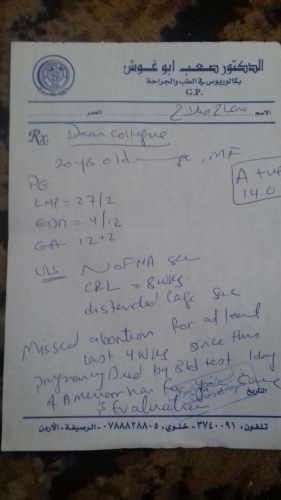 الدكتور صعب ابو غوش
بكالوريوس في الطب والجراحة
G.P.
الاسم سماح صلاح العمر
Rx Dear Collegue
20 yrs old , MF
A +ve
14.0
PG
LMP = 27/2
EDD = 4/12
GA 12+2
U/S No FHA see
CRL = 8 wks
distended sac
Missed abortion for at least
last 4 wks since this
pregnancy Died by Bld test 1 day
4 Amenorrhea for
& Evaluation
التاريخ
تلفون: ٣٧٤٠٠٩١ - خلوي: ٠٧٨٨٨٢٨٨٠٥ - الرصيفة - الأردن